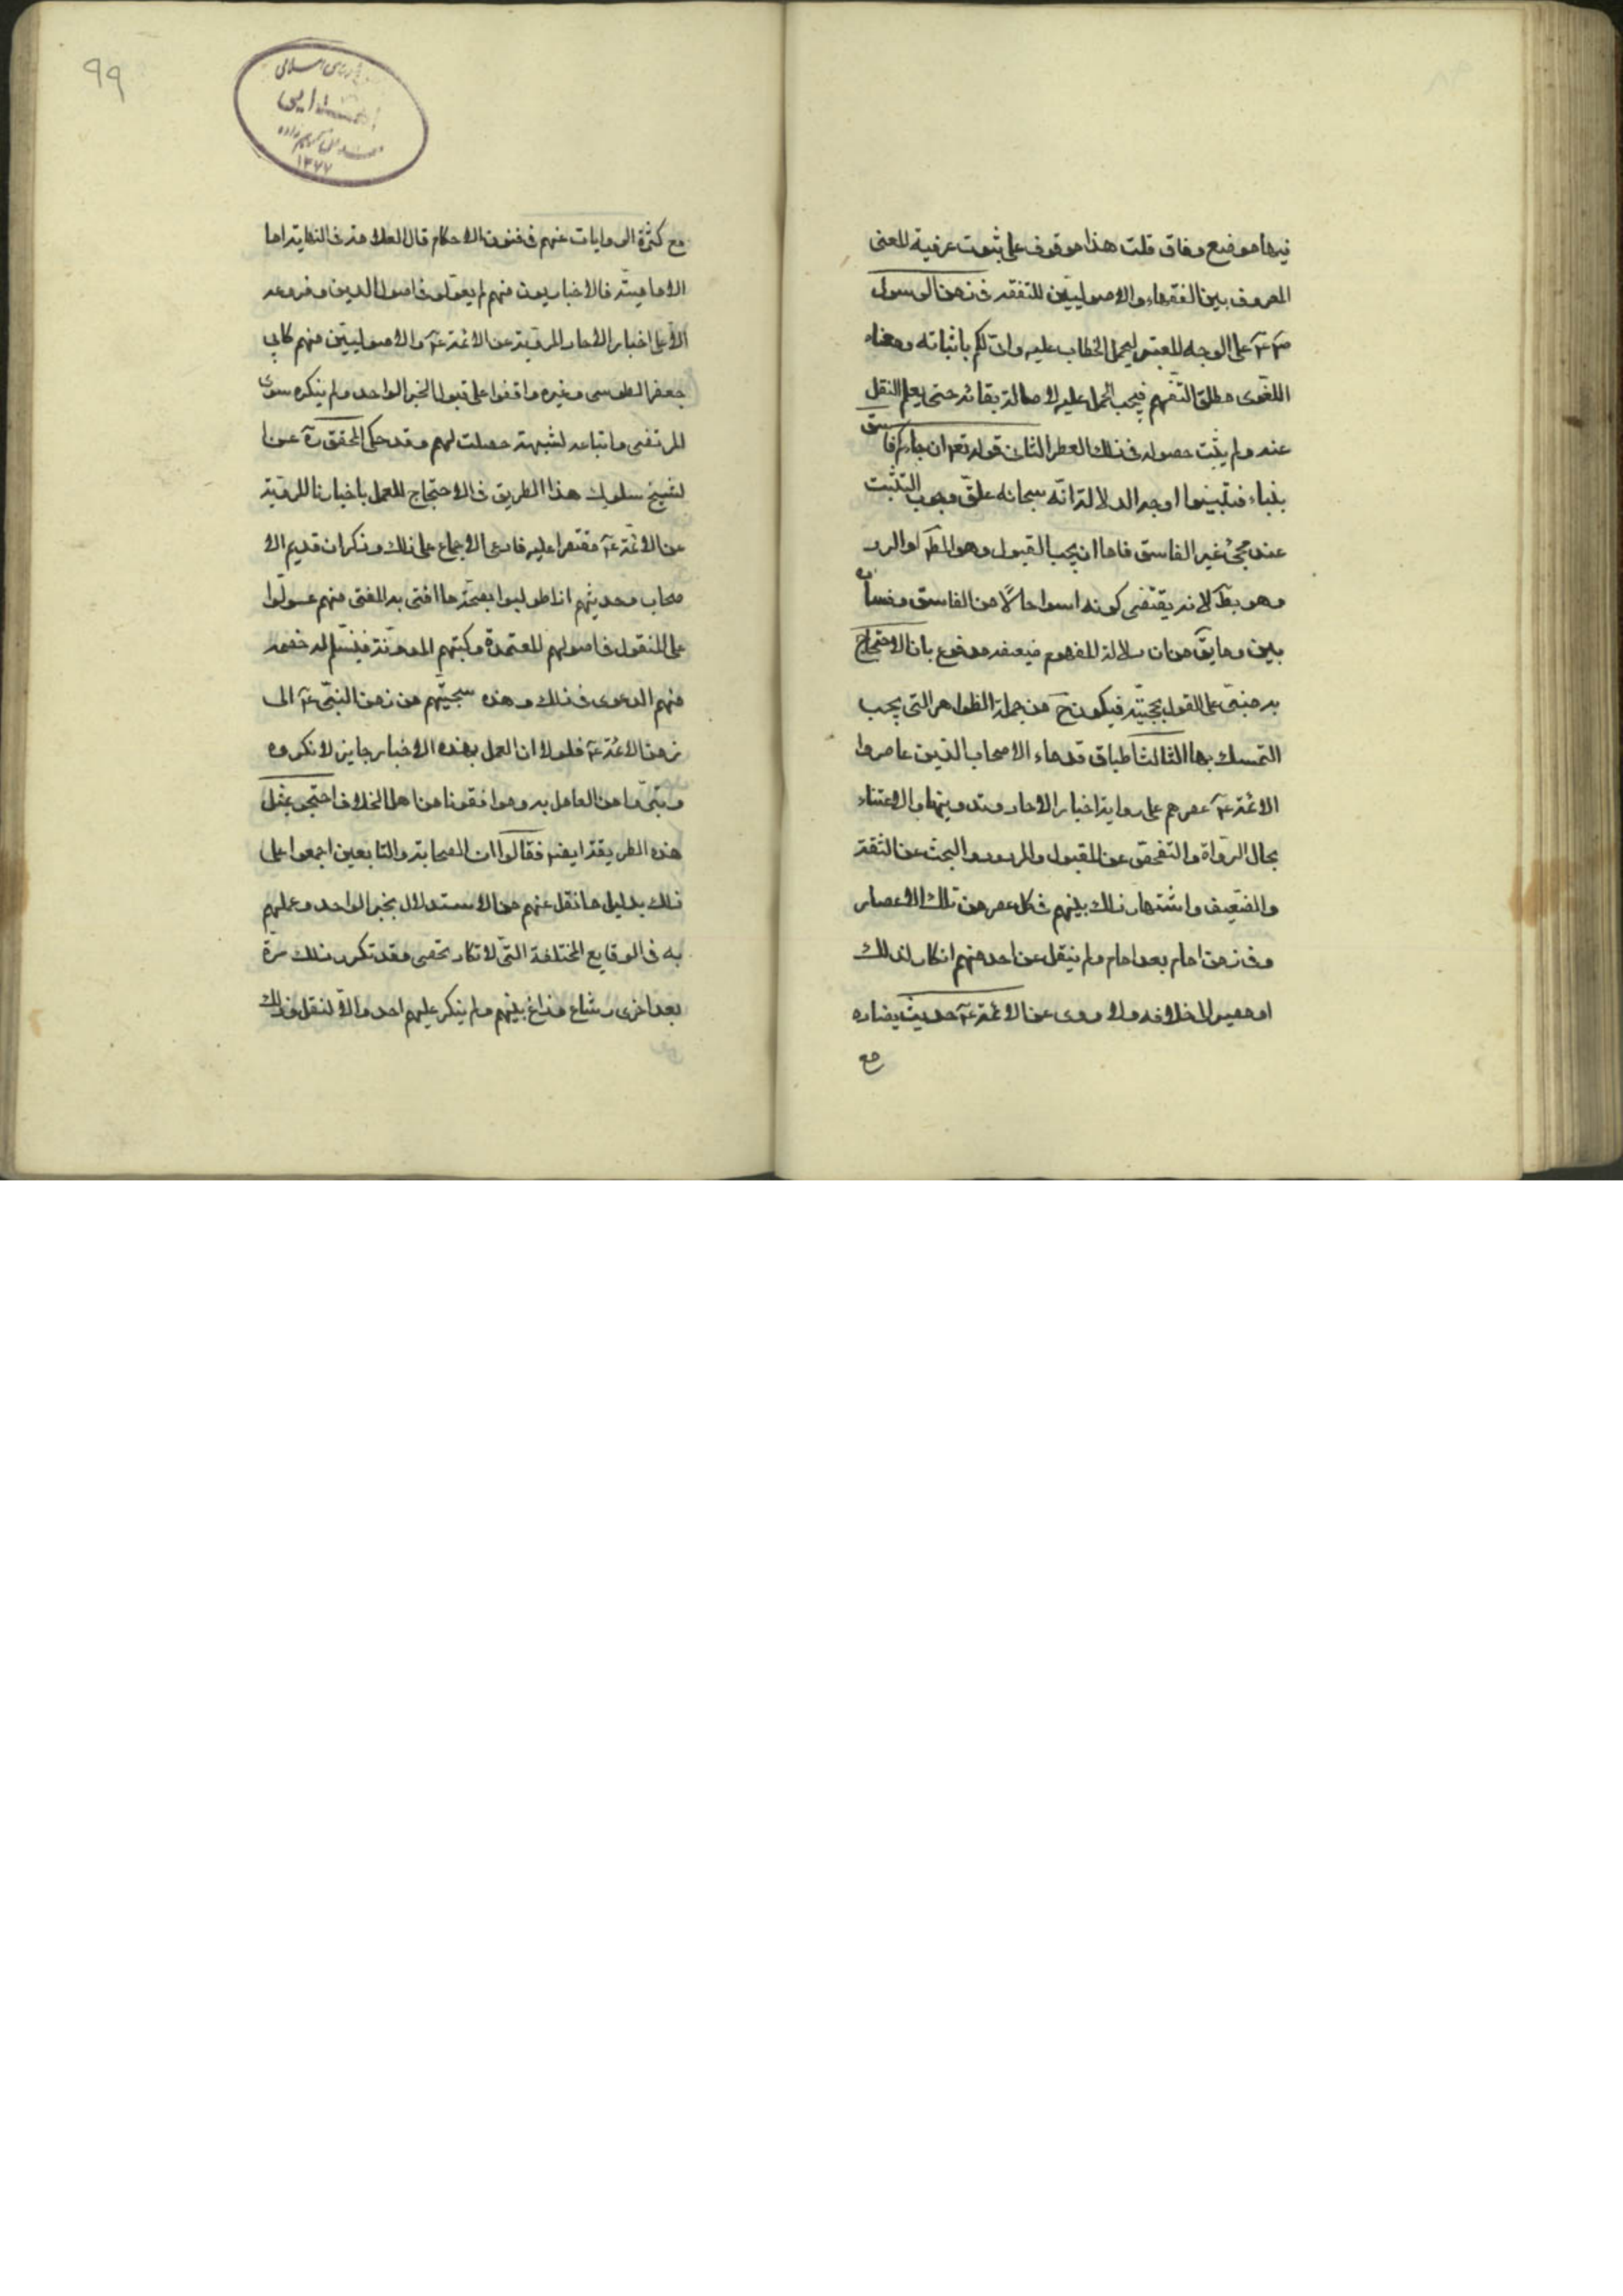 فيها موضع وفاق قلت هذا موقوف على ثبوت عرفية المعنى
المعروف بين الفقهاء والاصوليين للتفقه فى زمن الرسول
صم عم على الوجه المعتبر ليحمل الخطاب عليه وانى لكم باثباته ومعناه
اللغوى مطلق التفهم فيجب الحمل عليه لاصالة بقائه حتى يعلم النقل
عنه ولم يثبت حصوله فى ذلك العصر الثانى قوله تعم ان جاءكم فاسق
بنباء فتبينوا وجه الدلالة انه سبحانه علق وجوب التثبت
عند مجئ غير الفاسق فاما ان يجب القبول وهو المط او الرد
وهو بط لانه يقتضى كونه اسوا حالاً من الفاسق وفساده
بين وما يق من ان دلالة المفهوم ضعيفه مدفوع بان الاحتجاج
به مبنى على القول بحجيته فيكون ح من جملة الظواهر التى يجب
التمسك بها الثالث اطباق قدماء الاصحاب الذين عاصروا
الائمة عم عصرهم على رواية اخبار الاحاد وتدوينها والاعتناء
بحال الرواة والتفحص عن المقبول والمردود والبحث عن الثقة
والضعيف واشتهار ذلك بينهم فى كل عصر من تلك الاعصار
وفى زمن امام بعد امام ولم ينقل عن احد منهم انكار لذلك
او مصير الى خلافه ولا روى عن الائمة عم حديث يضاده
مع
٩٩
١٣٧٧
مع كثرة الروايات عنهم فى فنون الاحكام قال العلامة فى النهاية اما
الامامية فالاخباريون منهم لم يعولوا فى اصول الدين وفروعه
الا على اخبار الاحاد المروية عن الائمة عم والاصوليين منهم كابى
جعفر الطوسى وغيره وافقوا على قبول الخبر الواحد ولم ينكره سوى
المرتضى واتباعه لشبهة حصلت لهم وقد حكى المحقق ره عن ا
لشيخ سلوك هذا الطريق فى الاحتجاج للعمل باخبارنا المروية
عن الائمة عم مقتصرا عليه فادعى الاجماع على ذلك وذكر ان قديم الا
صحاب وحديثهم اذا طولبوا بصحة ما افتى به المفتى منهم عولوا
على المنقول فى اصولهم المعتمدة وكتبهم المدونة فيسلم له خصمه
منهم الدعوى فى ذلك وهذه سجيتهم من زمن النبى عم الى
زمن الائمة عم فلولا ان العمل بهذه الاخبار جايز لانكروه
وتبرؤا من العامل به وموافقونا من اهل الخلاف احتجوا بمثل
هذه الطريقة ايضا فقالوا ان الصحابة والتابعين اجمعوا على
ذلك بدليل ما نقل عنهم من الاستدلال بخبر الواحد وعملهم
به فى الوقايع المختلفة التى لا تكاد تحصى وقد تكرر ذلك مرة
بعد اخرى وشاع وذاع بينهم ولم ينكر عليهم احد والا لنقل وذلك